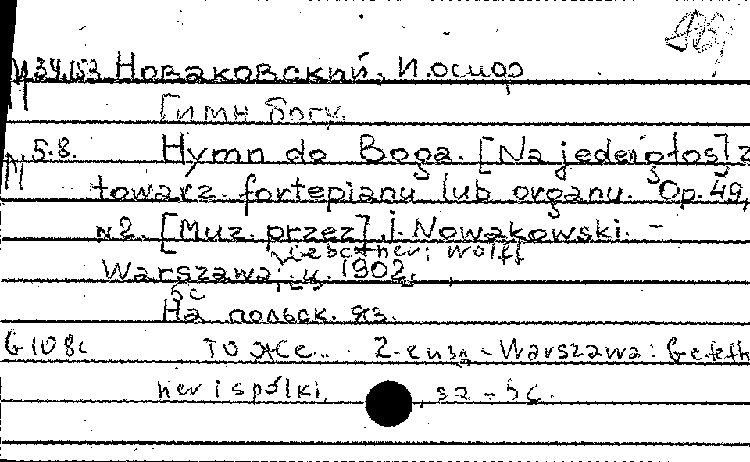 М 34.153 Новаковский, Иосиф
Гимн богу.
М 5.8. Hymn do Boga. [Na jeden głos] z
towarz. fortepianu lub organu. Op. 49,
№2. [Muz. przez] J. Nowakowski. –
Gebethner i Wolff
Warszawa, 1902.
5 с
На польск. яз.
G 108c То же. 2-е изд. - Warszawa: Gebeth
ner i spółki, , sa - 5c.